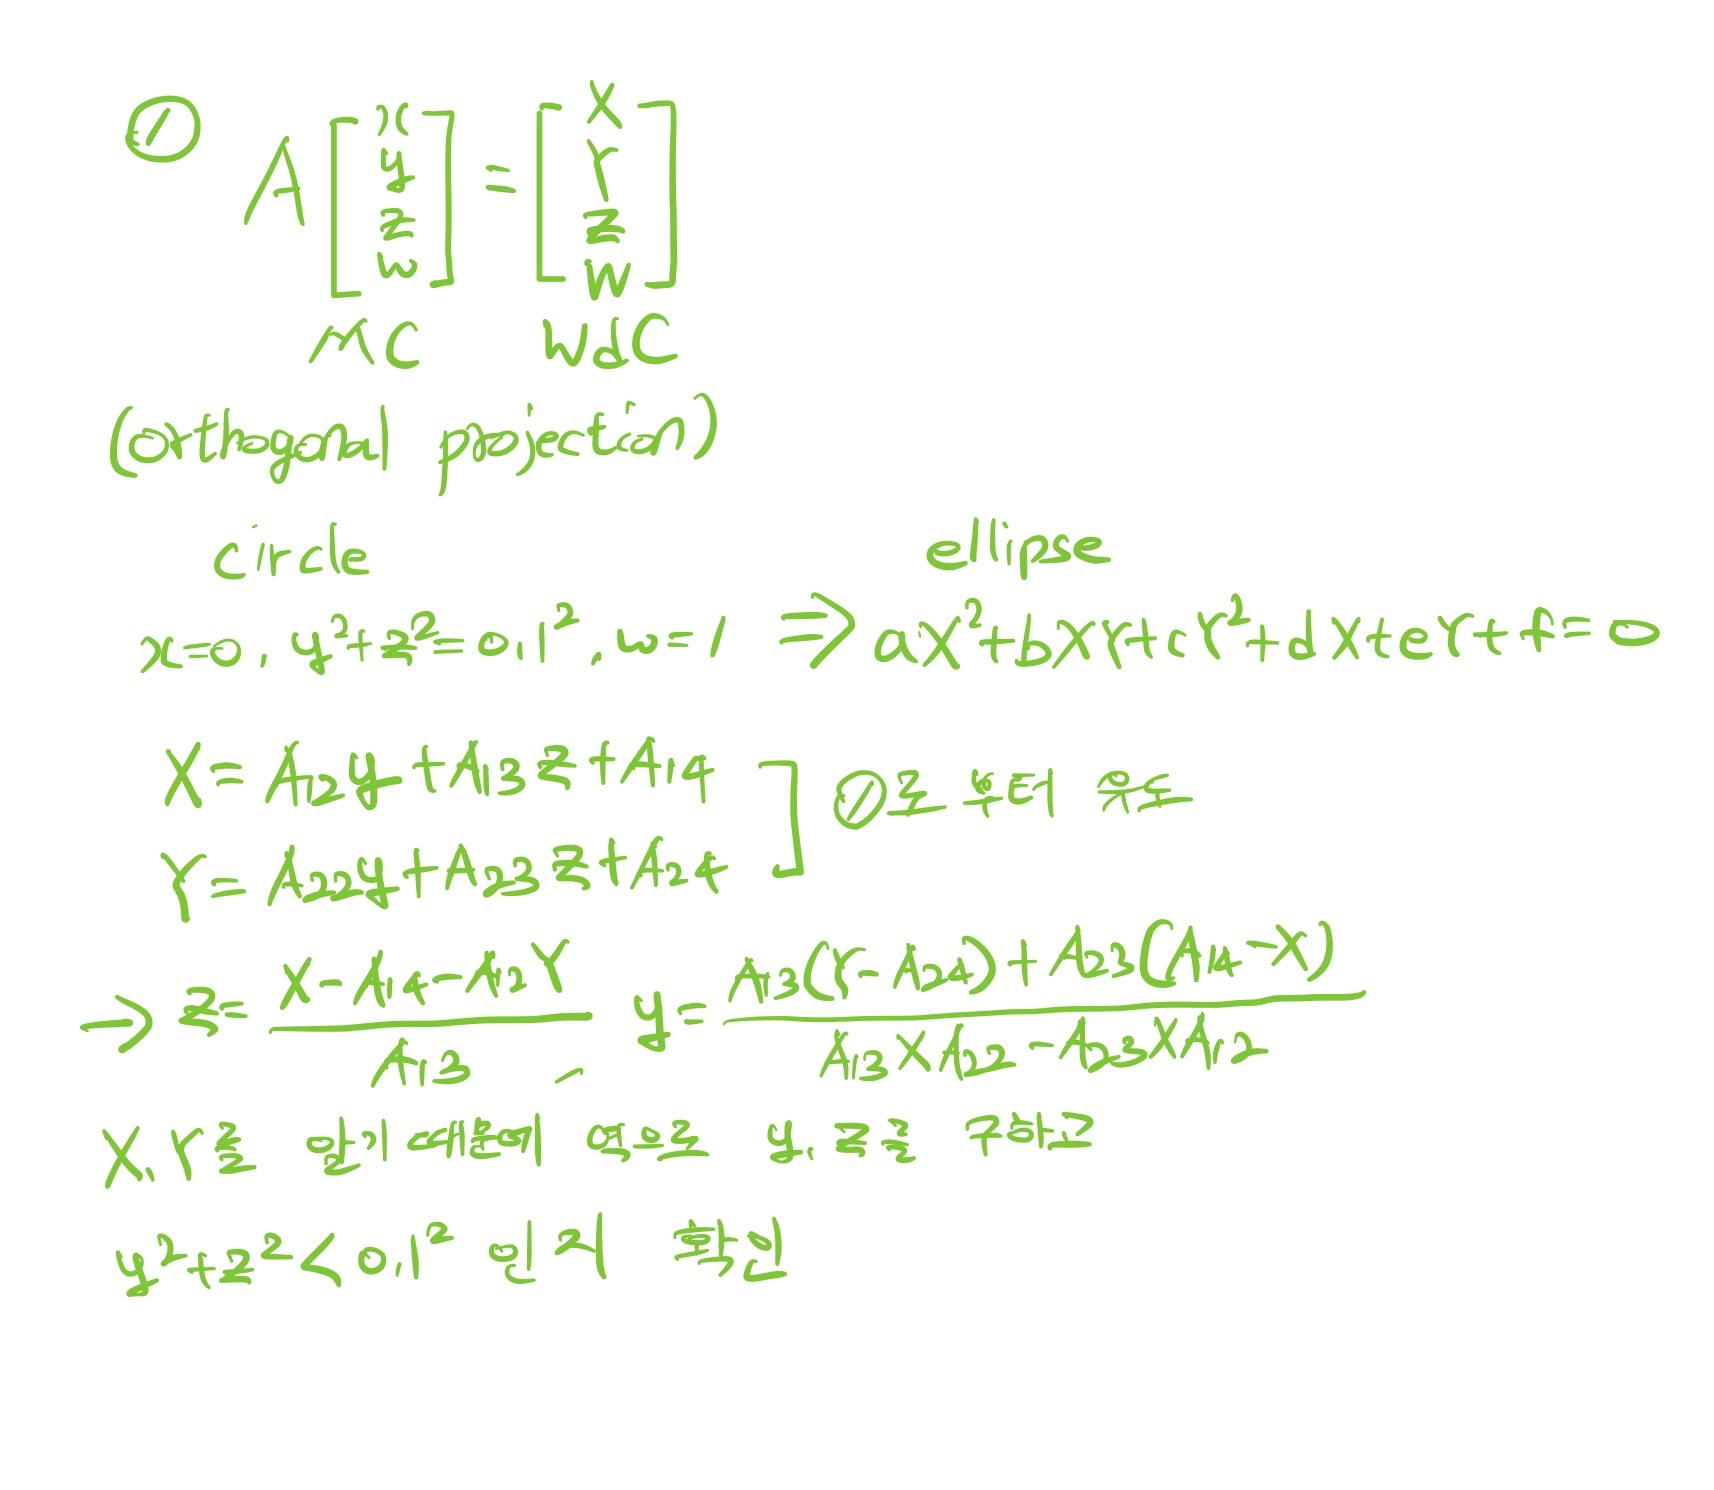 ① A [x y z w] = [X Y Z W]
MC WdC
(orthogonal projection)
circle ellipse
x=0, y²+z²=0.1², w=1 ⇒ aX²+bXY+cY²+dX+eY+f=0
X = A₁₂y+A₁₃z+A₁₄
①로 부터 유도
Y = A₂₂y+A₂₃z+A₂₄
→ z = (X-A₁₄-A₁₂Y)/A₁₃, y = (A₁₃(Y-A₂₄)+A₂₃(A₁₄-X))/(A₁₃×A₂₂-A₂₃×A₁₂)
X, Y를 알기 때문에 역으로 y, z를 구하고
y²+z²<0.1² 인지 확인